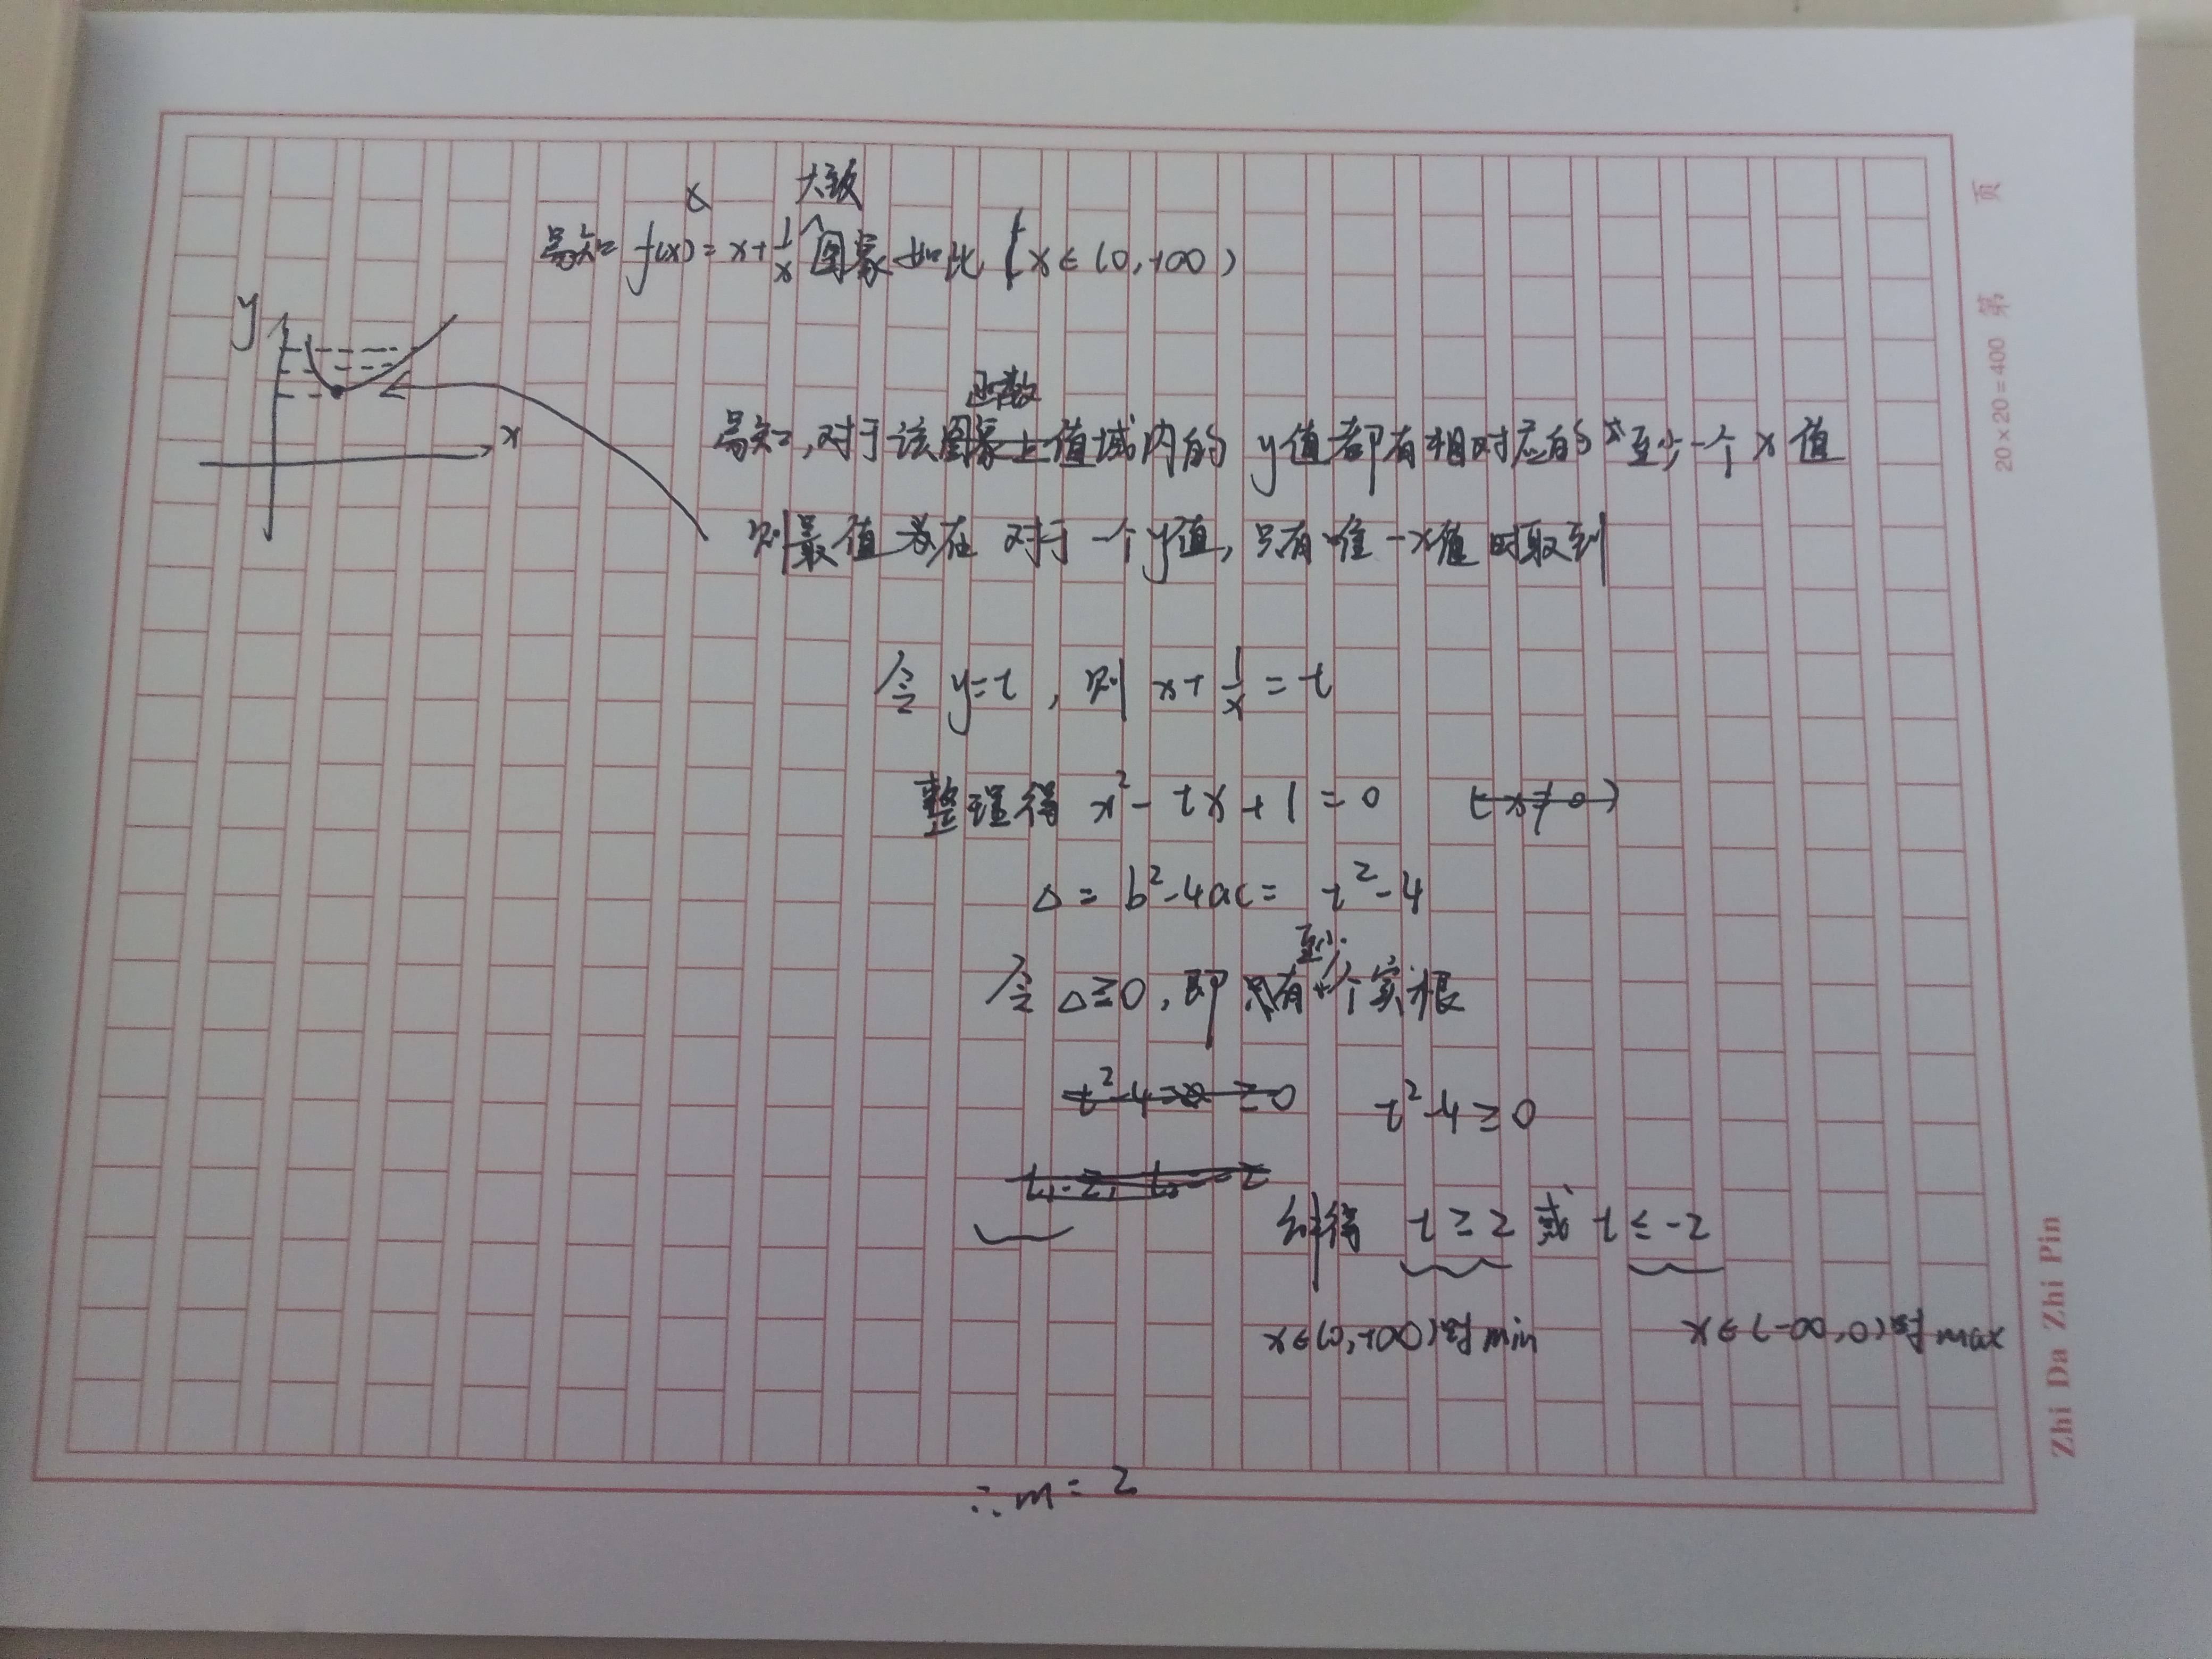 大致
易知 f(x)=x+1/x 图象如此 (x∈(0,+∞)
y
x
函数
易知,对于该图象上值域内的 y值都有相对应的 至少一个 x 值
则最值 在 对于一个y值,只有唯一x值时取到
令 y=t , 则 x+1/x=t
整理得 x²-tx+1=0 (x≠0)
Δ= b²-4ac= t²-4
至少
令 Δ≥0,即 只有一个实根
t²-4 ≥0 t²-4≥0
t₁=2, t₂=-2
解得 t≥2 或 t≤-2
x∈(0,+∞)时min x∈(-∞,0)时max
∴m=2
页
第
20×20=400
Zhi Da Zhi Pin